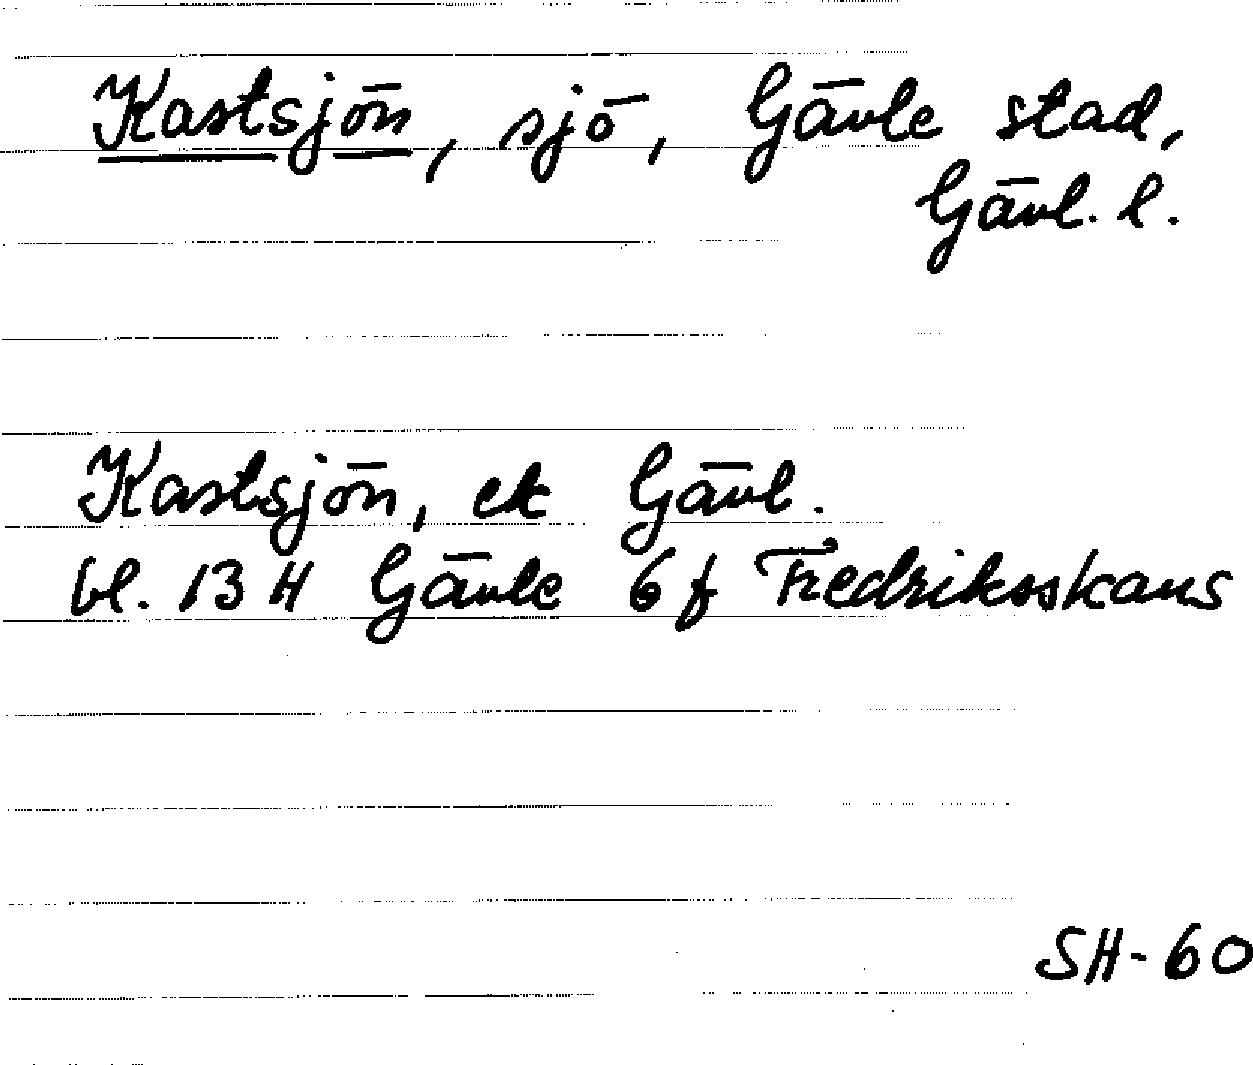 Kastsjön, sjö, Gävle stad,
Gävl. l.
Kastsjön, ek Gävl.
bl. 13 H Gävle 6 f Fredriksskans
SH-60